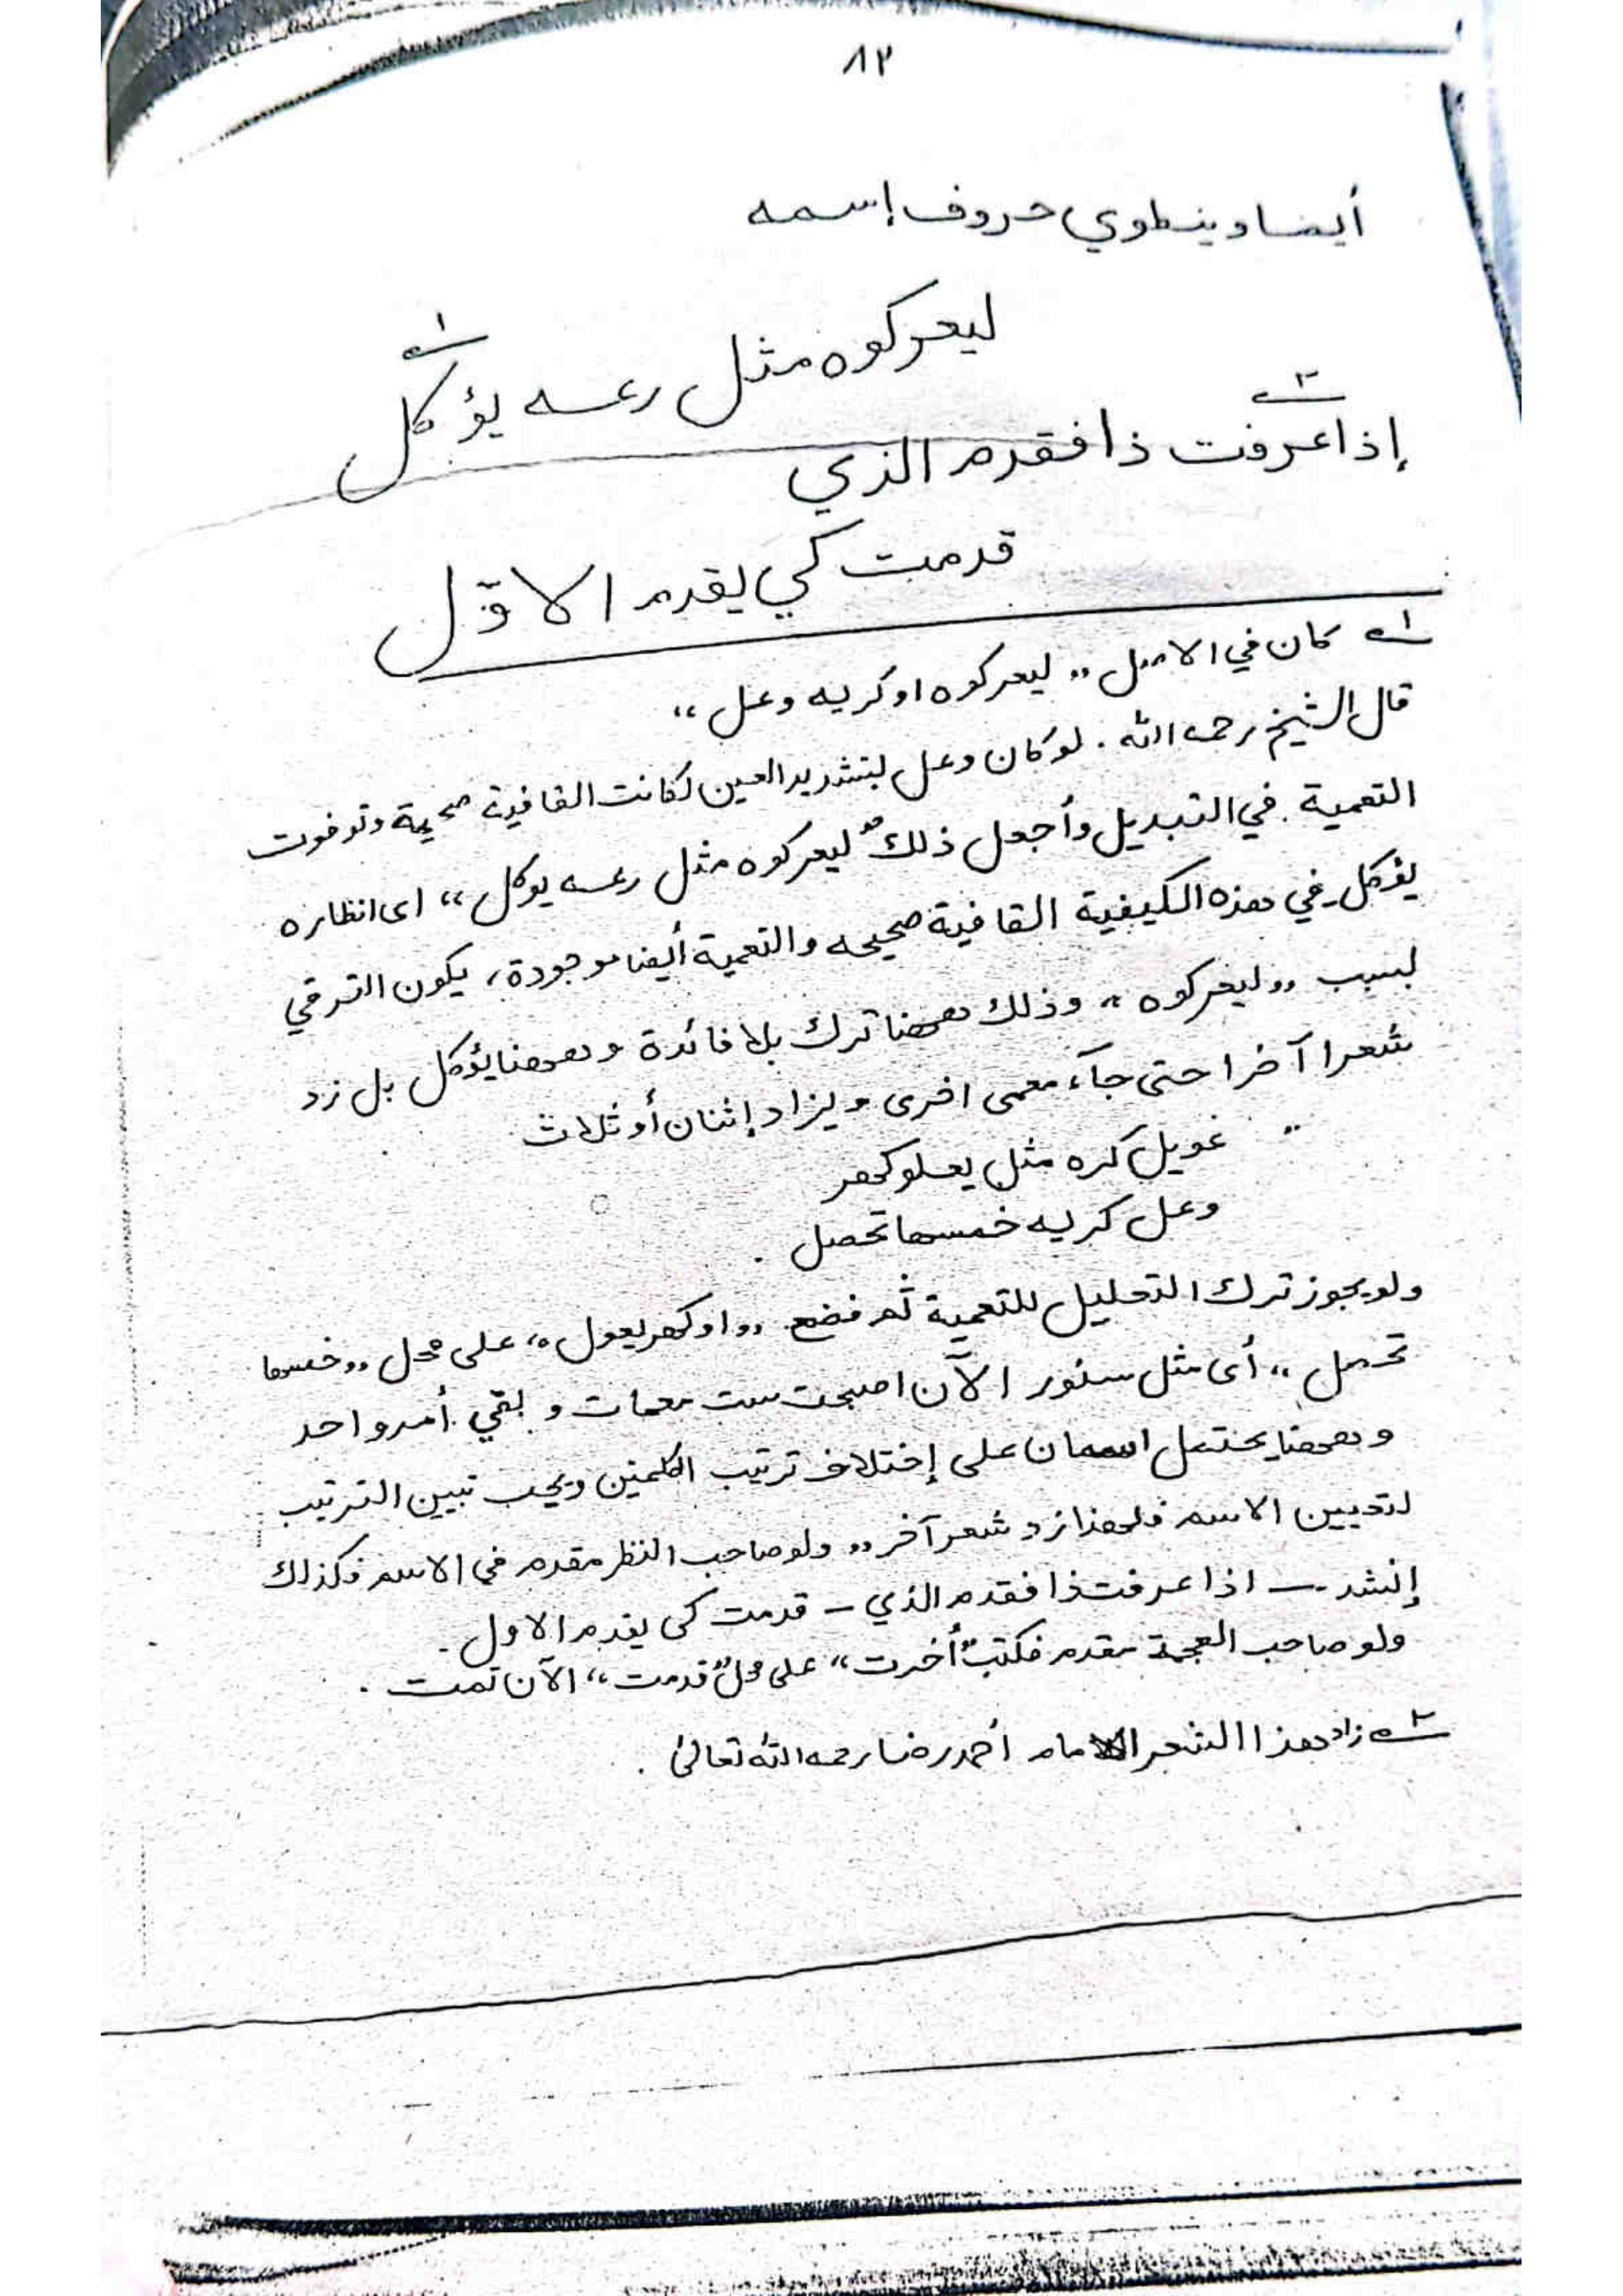 ٨٢
أيضا وينطوي حروف إسمه
ليعركوه مثل رعسه يؤكل ١
إذا عرفت ذا فقدم الذي ٢
قدمت كي يقدم الاوّل
١ كان في الاصل ,, ليعركوه اوكريه وعل ،،
قال الشيخ رحمه الله . لو كان وعل بتشديد العين لكانت القافية صحيحة وتوفوت
التعمية . في التبديل وأجعل ذلك ,, ليعركوه مثل رعسه يوكل ،، اى انظاره
يؤكل في هذه الكيفية القافية صحيحه والتعمية أيضا موجودة ، يكون الترقي
بسبب ,, ليعركوه ،، وذلك ههنا ترك بلا فائدة وههنا يؤكل بل زد
شعرا آخرا حتى جآء معمى اخرى ويزاد إثنان أو ثلاث
,, غويل كره مثل يعلوكهر
وعل كريه خمسها تحصل .
ولو يجوز ترك التحليل للتعمية ثم فضع ,, اوكهر يعول ،، على محل ,, خمسها
تحصل ،، أى مثل سنور الآن اصبحت ست معمات و بقي أمر واحد
و ههنا يحتمل اسمان على إختلاف ترتيب الكلمتين ويجب تبيين الترتيب
لتعيين الاسم فلهذا زد شعر آخر ,, ولو صاحب النظر مقدم في الاسم فكذلك
إنشد - اذا عرفت ذا فقدم الذي - قدمت كى يقدم الاول .
ولو صاحب العجمة مقدم فكتب ,, أخرت ،، على محل ,, قدمت ،، الآن تمت .
٢ زاد هذا الشعر الامام أحمد رضا رحمه الله تعالىٰ .